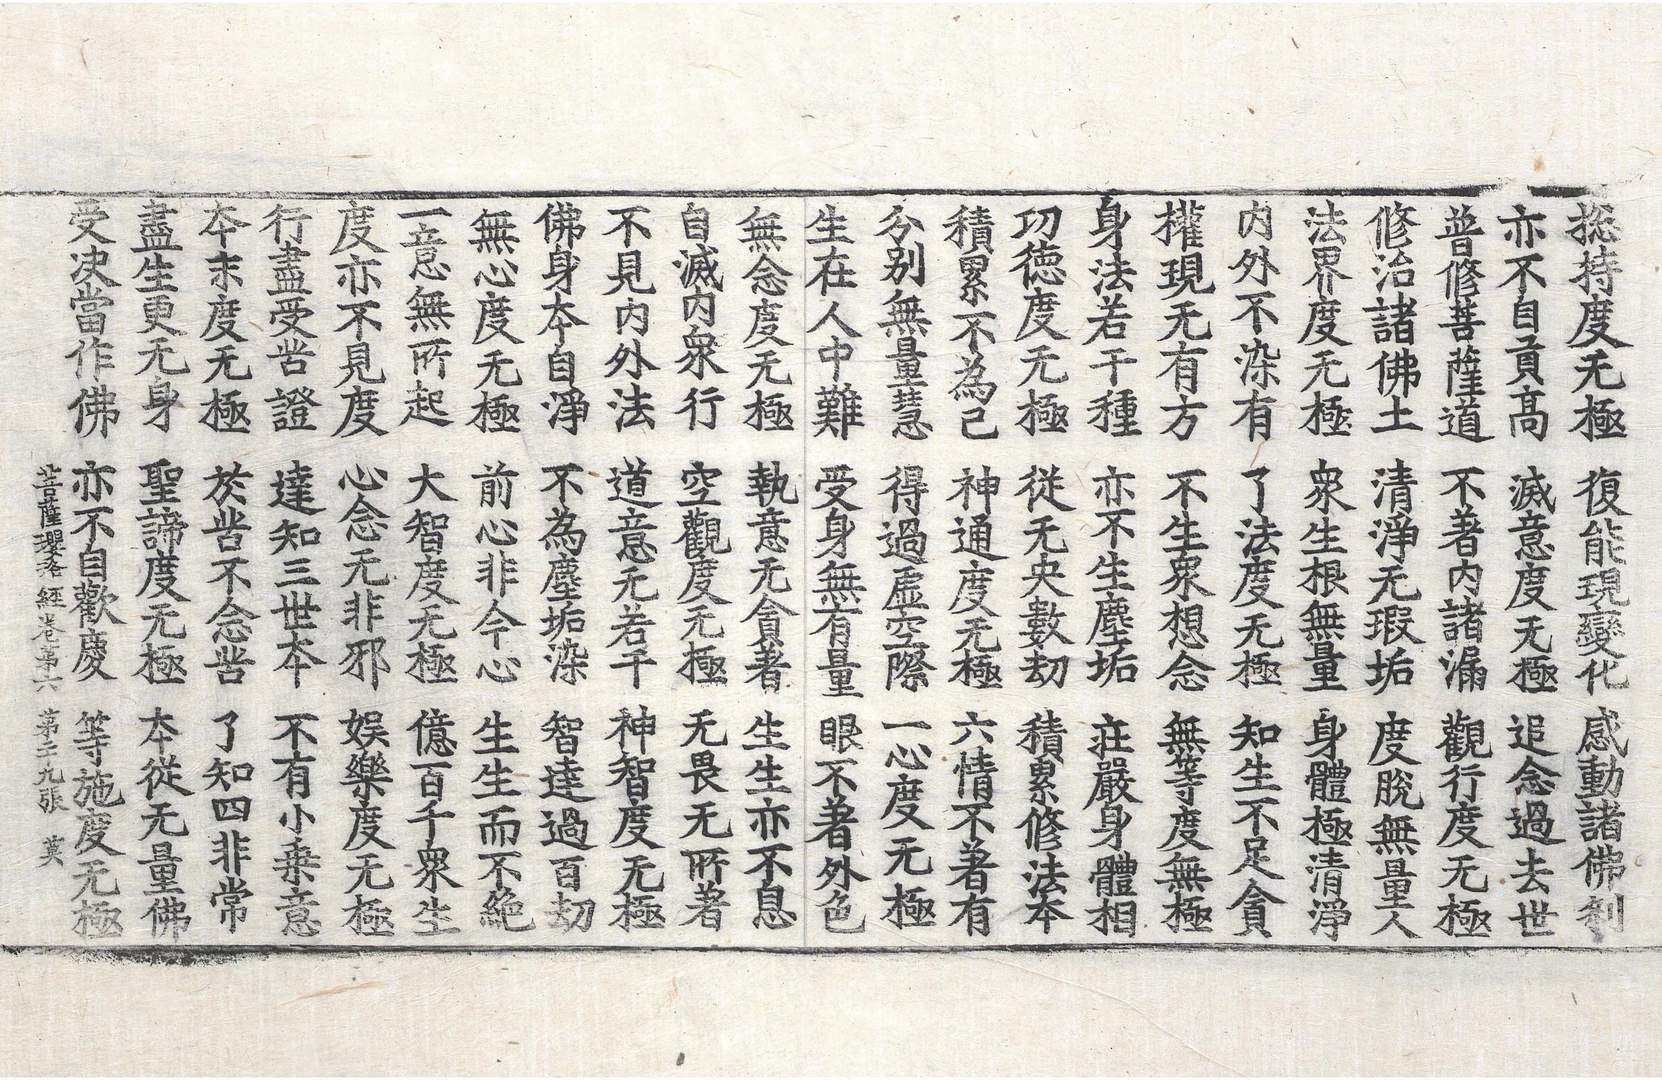 捴持度无極 復能現變化 感動諸佛刹
亦不自貢高 滅意度无極 追念過去世
普修菩薩道 不著內諸漏 觀行度无極
修治諸佛土 清淨无瑕垢 度脫無量人
法界度无極 衆生根無量 身體極清淨
內外不染有 了法度无極 知生不足貪
權現无有方 不生衆想念 無等度無極
身法若干種 亦不生塵垢 莊嚴身體相
功德度无極 從无央數劫 積累修法本
積累不為己 神通度无極 六情不著有
分别無量慧 得過虛空際 一心度无極
生在人中難 受身無有量 眼不著外色
無念度无極 執意无貪著 生生亦不息
自滅內衆行 空觀度无極 无畏无所著
不見內外法 道意无若干 神智度无極
佛身本自淨 不為塵垢染 智達過百劫
無心度无極 前心非今心 生生而不絶
一意無所起 大智度无極 億百千衆生
度亦不見度 心念无非邪 娯樂度无極
行盡受苦證 達知三世本 不有小乗意
本末度无極 於苦不念苦 了知四非常
盡生更无身 聖諦度无極 本從无量佛
受决當作佛 亦不自歡慶 等施度无極
菩薩瓔珞經卷第六 第二十九張 英